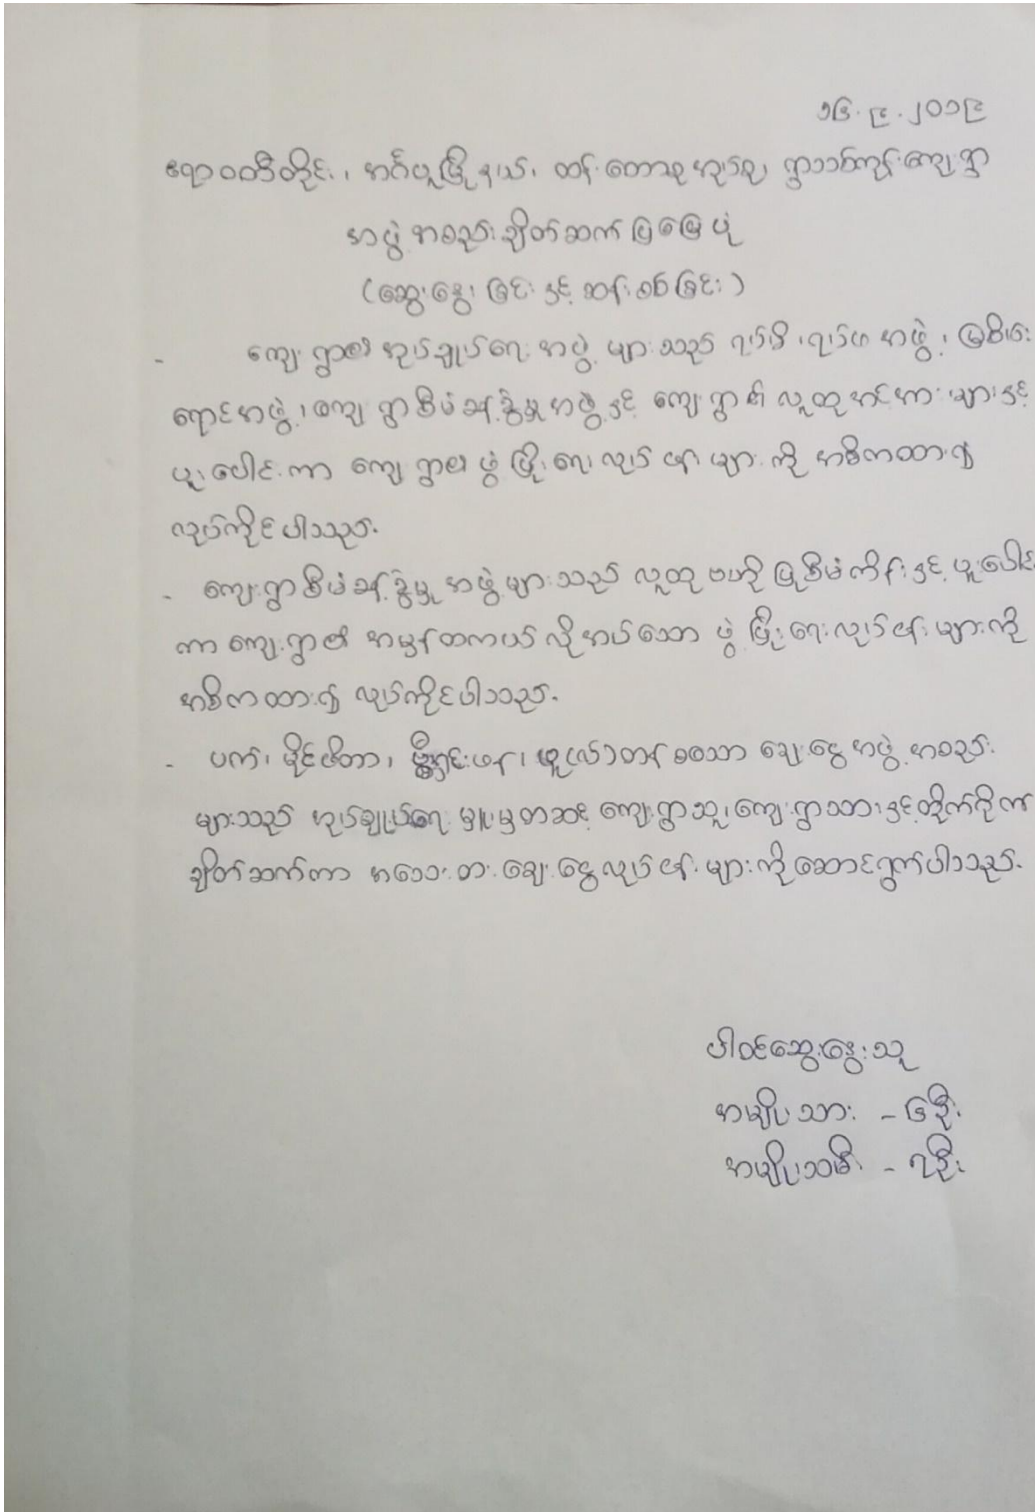 ၁၆.၉.၂၀၁၉
ဧရာဝတီတိုင်း၊ အင်္ဂပူမြို့နယ်၊ ထန်းတောသုအုပ်စု၊ ရွာသစ်ကုန်းကျေးရွာ
အဖွဲ့အစည်းချိတ်ဆက်ပြမြေပုံ
(ဆွေးနွေးခြင်းနှင့်ဆန်းစစ်ခြင်း)
- ကျေးရွာ၏ အုပ်ချုပ်ရေးအဖွဲ့များသည် ရပ်မိ၊ရပ်ဖအဖွဲ့၊ မြစိမ်း
ရောင်အဖွဲ့၊ ကျေးရွာစီမံခန့်ခွဲမှုအဖွဲ့နှင့် ကျေးရွာ၏ လူထုအင်အားများနှင့်
ပူးပေါင်းကာ ကျေးရွာ၏ ဖွံ့ဖြိုးရေးလုပ်ငန်းများကို အဓိကထား၍
လုပ်ကိုင်ပါသည်။
- ကျေးရွာစီမံခန့်ခွဲမှုအဖွဲ့များသည် လူထုဗဟိုပြုစီမံကိန်းနှင့် ပူးပေါင်း
ကာ ကျေးရွာ၏ အမှန်တကယ်လိုအပ်သော ဖွံ့ဖြိုးရေးလုပ်ငန်းများကို
အဓိကထား၍ လုပ်ကိုင်ပါသည်။
- ပက်၊ မိုင်ဇီတာ၊ မြန်မာ စသော ချေးငွေအဖွဲ့အစည်း
များသည် အုပ်ချုပ်ရေးမှူးမှတဆင့် ကျေးရွာသူ၊ကျေးရွာသားနှင့်တိုက်ရိုက်
ချိတ်ဆက်ကာ အသေးစားချေးငွေလုပ်ငန်းများကိုဆောင်ရွက်ပါသည်။
ပါဝင်ဆွေးနွေးသူ
အမျိုးသား - ၆ဦး
အမျိုးသမီး - ၇ဦး